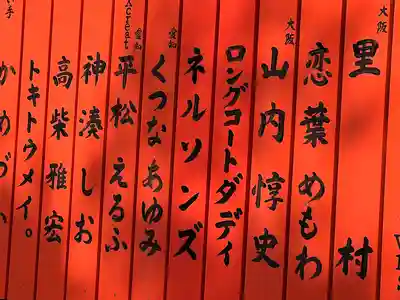 大阪 里村
恋葉めもわ
大阪 山内惇史
ロングコートダディ
ネルソンズ
愛知 くつなあゆみ
愛知 平松えるふ
神湊しお
高柴雅宏
トキトウメイ。
かめづか